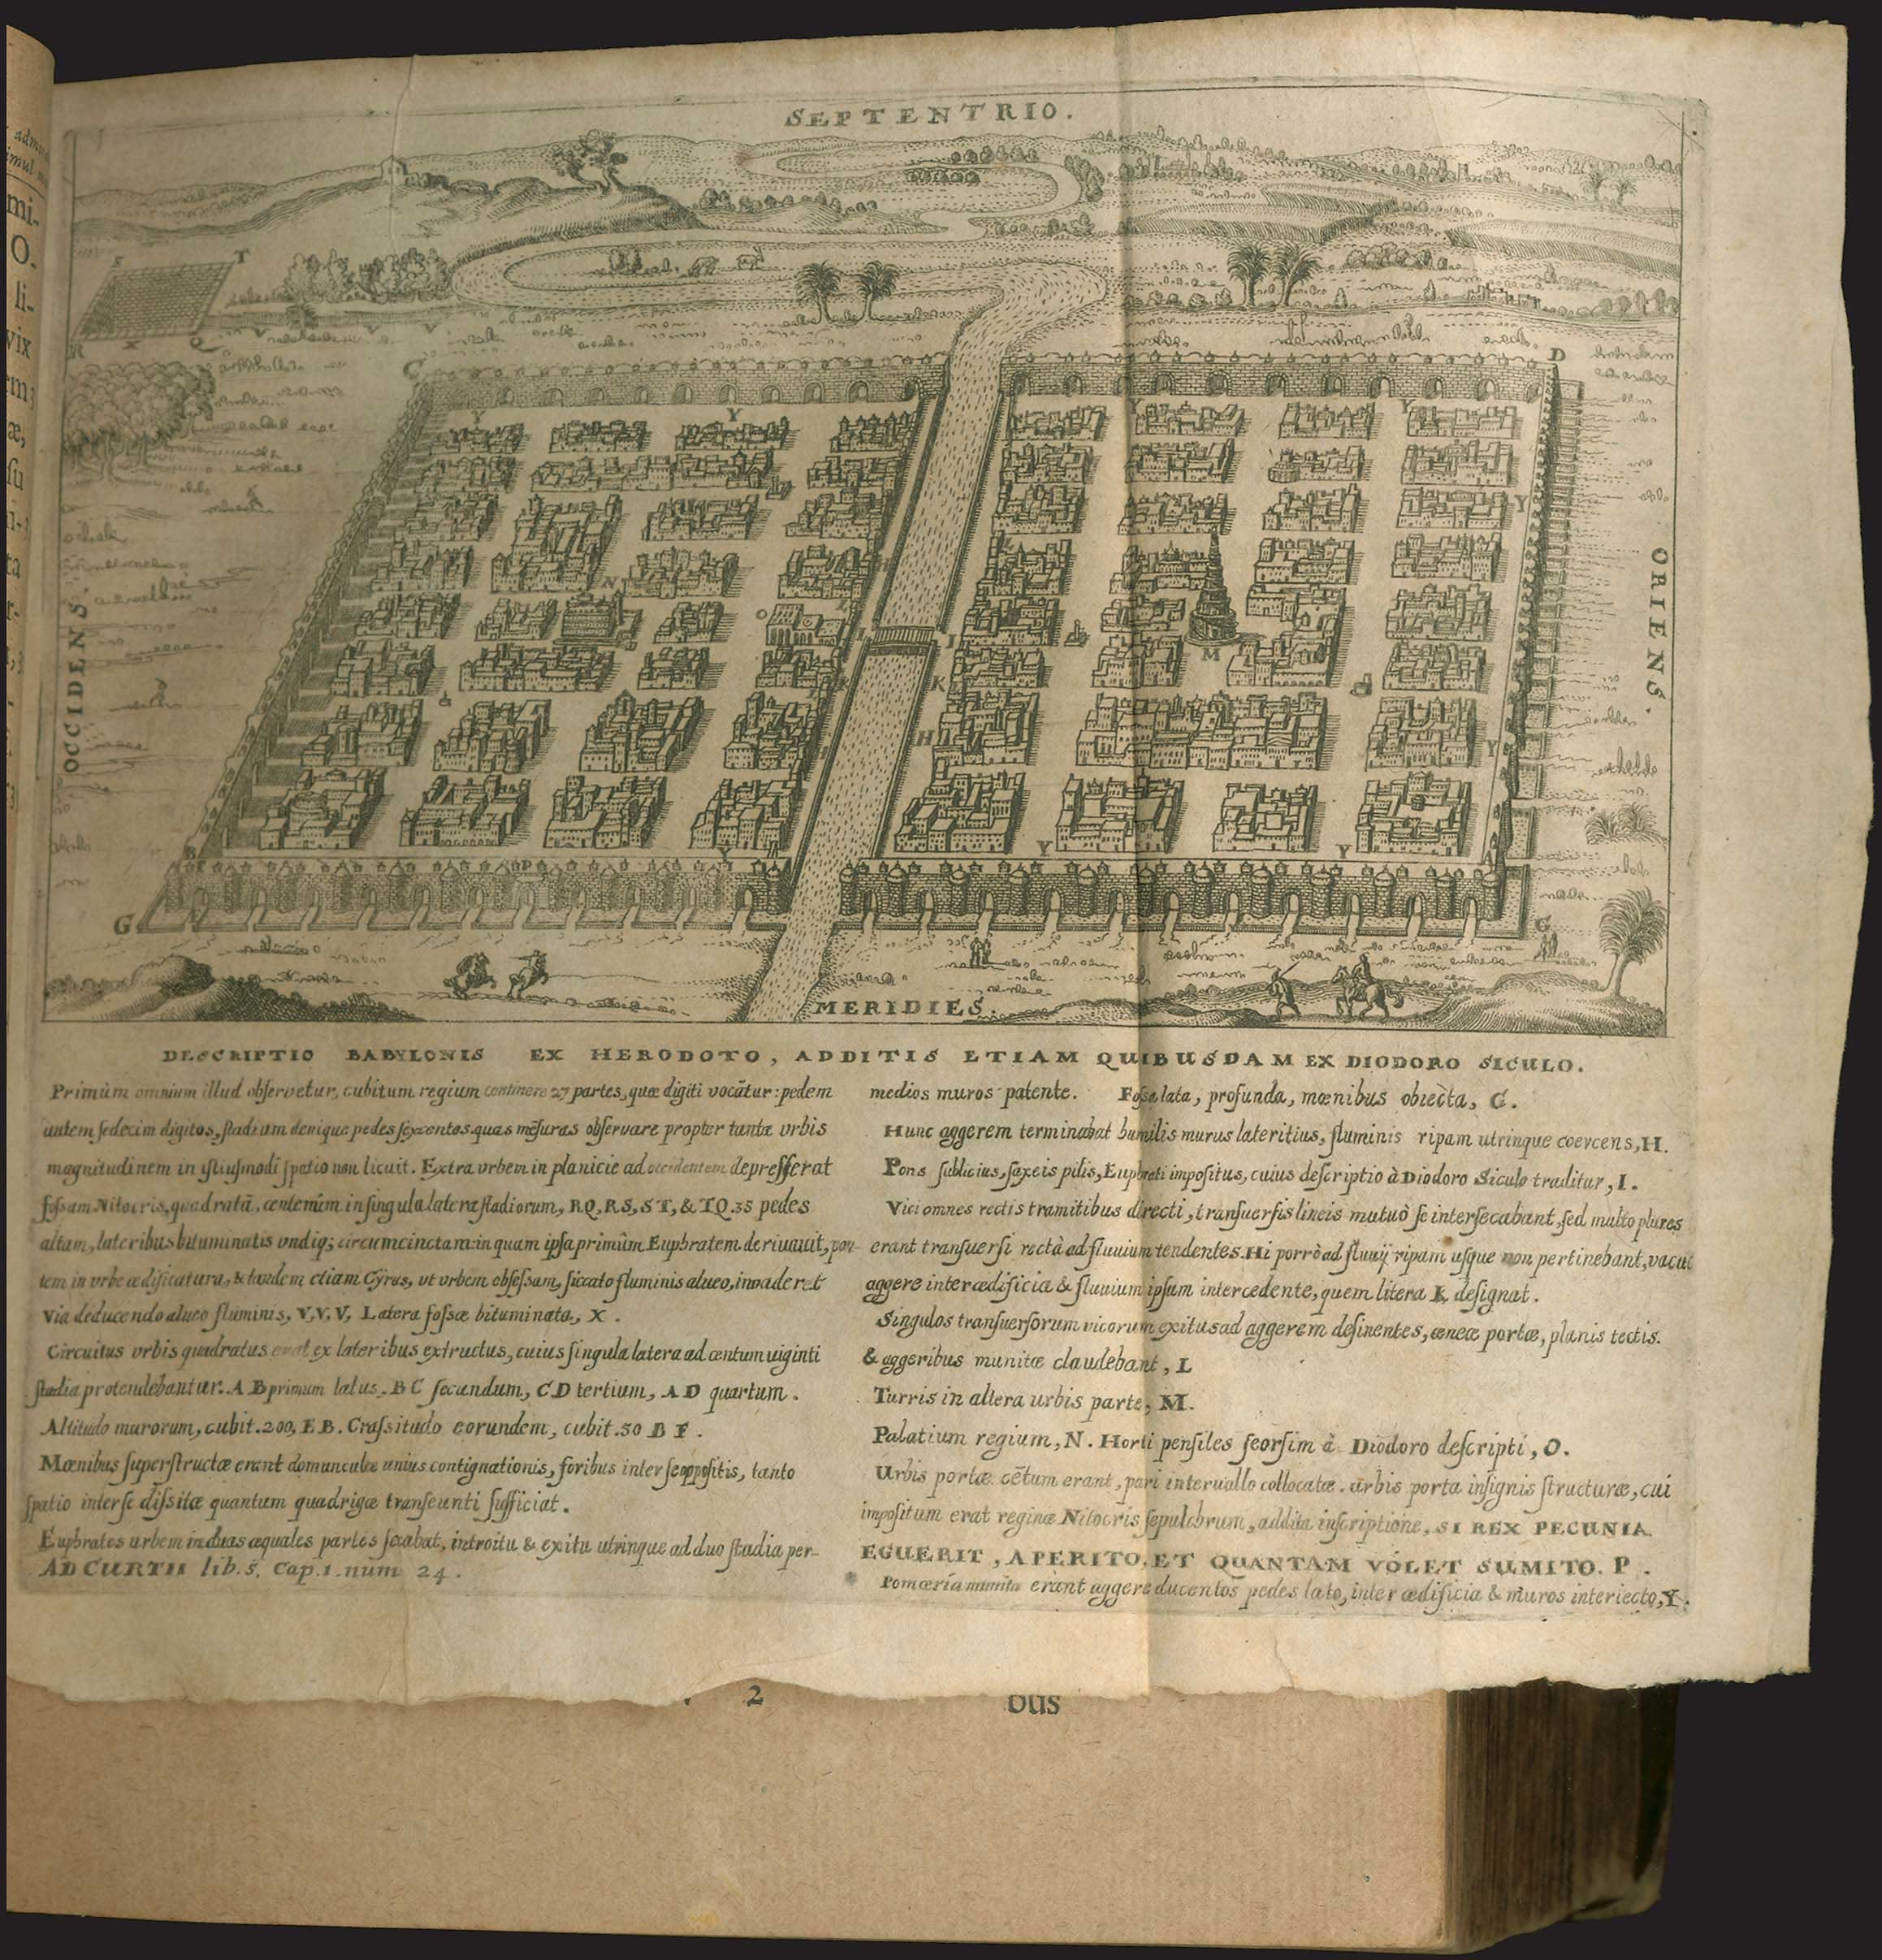 SEPTENTRIO.
OCCIDENS.
ORIENS.
S T
R X Q
C D
Y Y Y Y
Y
N
O
I I
M
K K
H
Y
B
Y Y Y
P
A
G G
MERIDIES.
DESCRIPTIO BABYLONIS EX HERODOTO, ADDITIS ETIAM QUIBUSDAM EX DIODORO SICULO.
Primùm omnium illud obſervetur, cubitum regium continere 27 partes, quæ digiti vocātur: pedem
autem ſedecim digitos, ſtadium denique pedes ſexcentos. quas mēſuras obſervare propter tantæ vrbis
magnitudinem in iſtiuſmodi ſpatio non licuit. Extra vrbem in planicie ad occidentem depreſſerat
foſſam Nitocris, quadratā, centenûm in ſingula latera ſtadiorum, RQ, RS, ST, & TQ. 35 pedes
altam, lateribus bituminatis vndiq; circumcinctam: in quam ipſa primùm Euphratem deriuauit, pon-
tem in vrbe ædificatura, & tandem etiam Cyrus, vt vrbem obſeſſam, ſiccato fluminis alueo, invaderet
Via deducendo alueo fluminis, V, V, V, Latera foſſæ bituminata, X.
Circuitus vrbis quadratus erat ex lateribus extructus, cuius ſingula latera ad centum uiginti
ſtadia protendebantur. AB primum latus. BC ſecundum, CD tertium, AD quartum.
Altitudo murorum, cubit. 200, EB. Craſsitudo eorundem, cubit. 50 BF.
Mœnibus ſuperſtructæ erant domunculæ unius contignationis, foribus inter ſe oppoſitis, tanto
ſpatio inter ſe diſsitæ quantum quadrigæ tranſeunti ſufficiat.
Euphrates urbem in duas æquales partes ſecabat, introitu & exitu utrinque ad duo ſtadia per-
AD CURTII lib. 5. Cap. 1. num 24.
medios muros patente. Foſſa lata, profunda, mœnibus obiecta, G.
Hunc aggerem terminabat humilis murus lateritius, fluminis ripam utrinque coercens, H.
Pons ſublicius, ſaxeis pilis, Euphrati impoſitus, cuius deſcriptio à Diodoro Siculo traditur, I.
Vici omnes rectis tramitibus directi, tranſuerſis lineis mutuò ſe interſecabant, ſed multo plures
erant tranſuerſi rectà ad fluuium tendentes. Hi porrò ad fluuij ripam uſque non pertinebant, vacuo
aggere inter ædificia & fluuium ipſum intercedente, quem litera K deſignat.
Singulos tranſuerſorum vicorum exitus ad aggerem deſinentes, æneæ portæ, planis tectis.
& aggeribus munitæ claudebant, L
Turris in altera urbis parte, M.
Palatium regium, N. Horti penſiles ſeorſim à Diodoro deſcripti, O.
Urbis portæ cētum erant, pari interuallo collocatæ. urbis porta inſignis ſtructuræ, cui
impoſitum erat reginæ Nitocris ſepulchrum, addita inſcriptione, SI REX PECUNIA
EGUERIT, APERITO, ET QUANTAM VOLET SUMITO. P.
Pomœria munita erant aggere ducentos pedes lato, inter ædificia & muros interiecto, Y.
2 bus